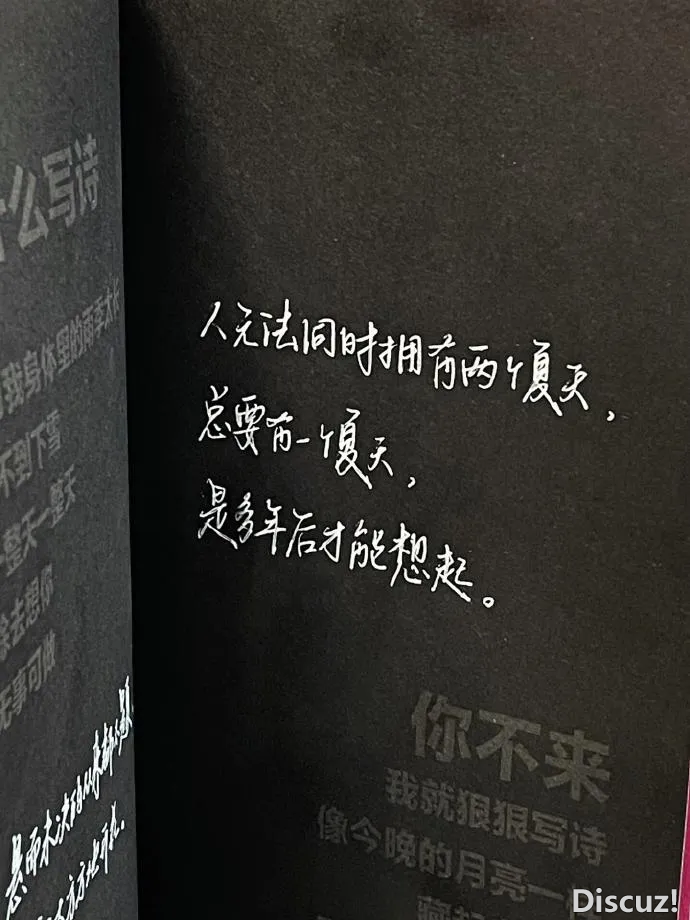 么写诗
我身体里的雨季太长
不到下雪
一整天一整天
除去想你
无事可做
悬而未决的从来都
人无法同时拥有两个夏天，
总要有一个夏天，
是多年后才能想起。
你不来
我就狠狠写诗
像今晚的月亮一
Discuz!